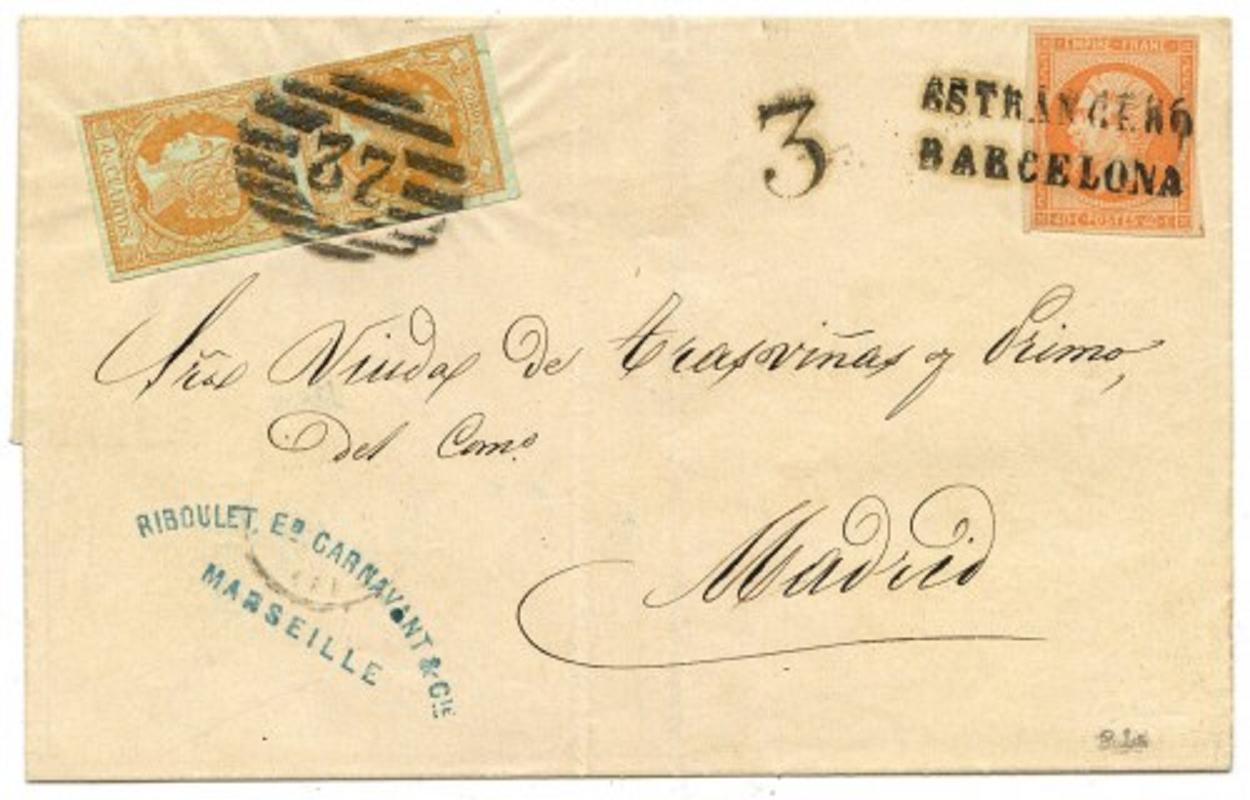 4 CUARTOS
CUARTOS
32
3
EMPIRE FRANC
40 C POSTES 40 C
ESTRANGERO
BARCELONA
Sra Viuda de Trasviñas y Primo,
Del Como.
Madrid
RIBOULET, ED CARNAVANT & CIE
MARSEILLE